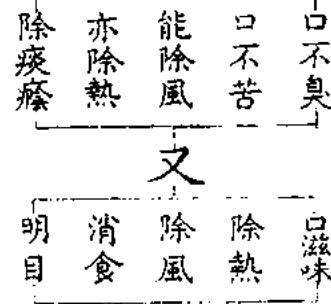 口不臭
口不苦
能除風
亦除熱
除痰癊
又
口滋味
除熱
除風
消食
明目